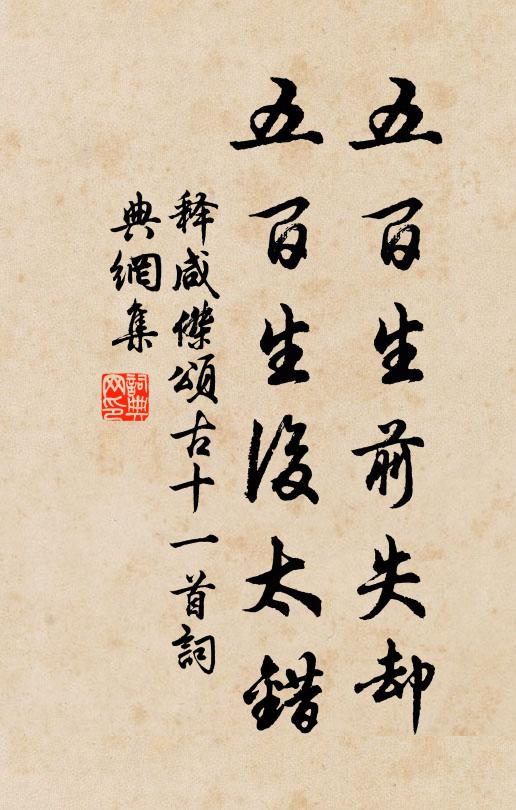 五百生前失却
五百生後太錯
释咸傑頌古十一首詞
典網集
詞典
网印